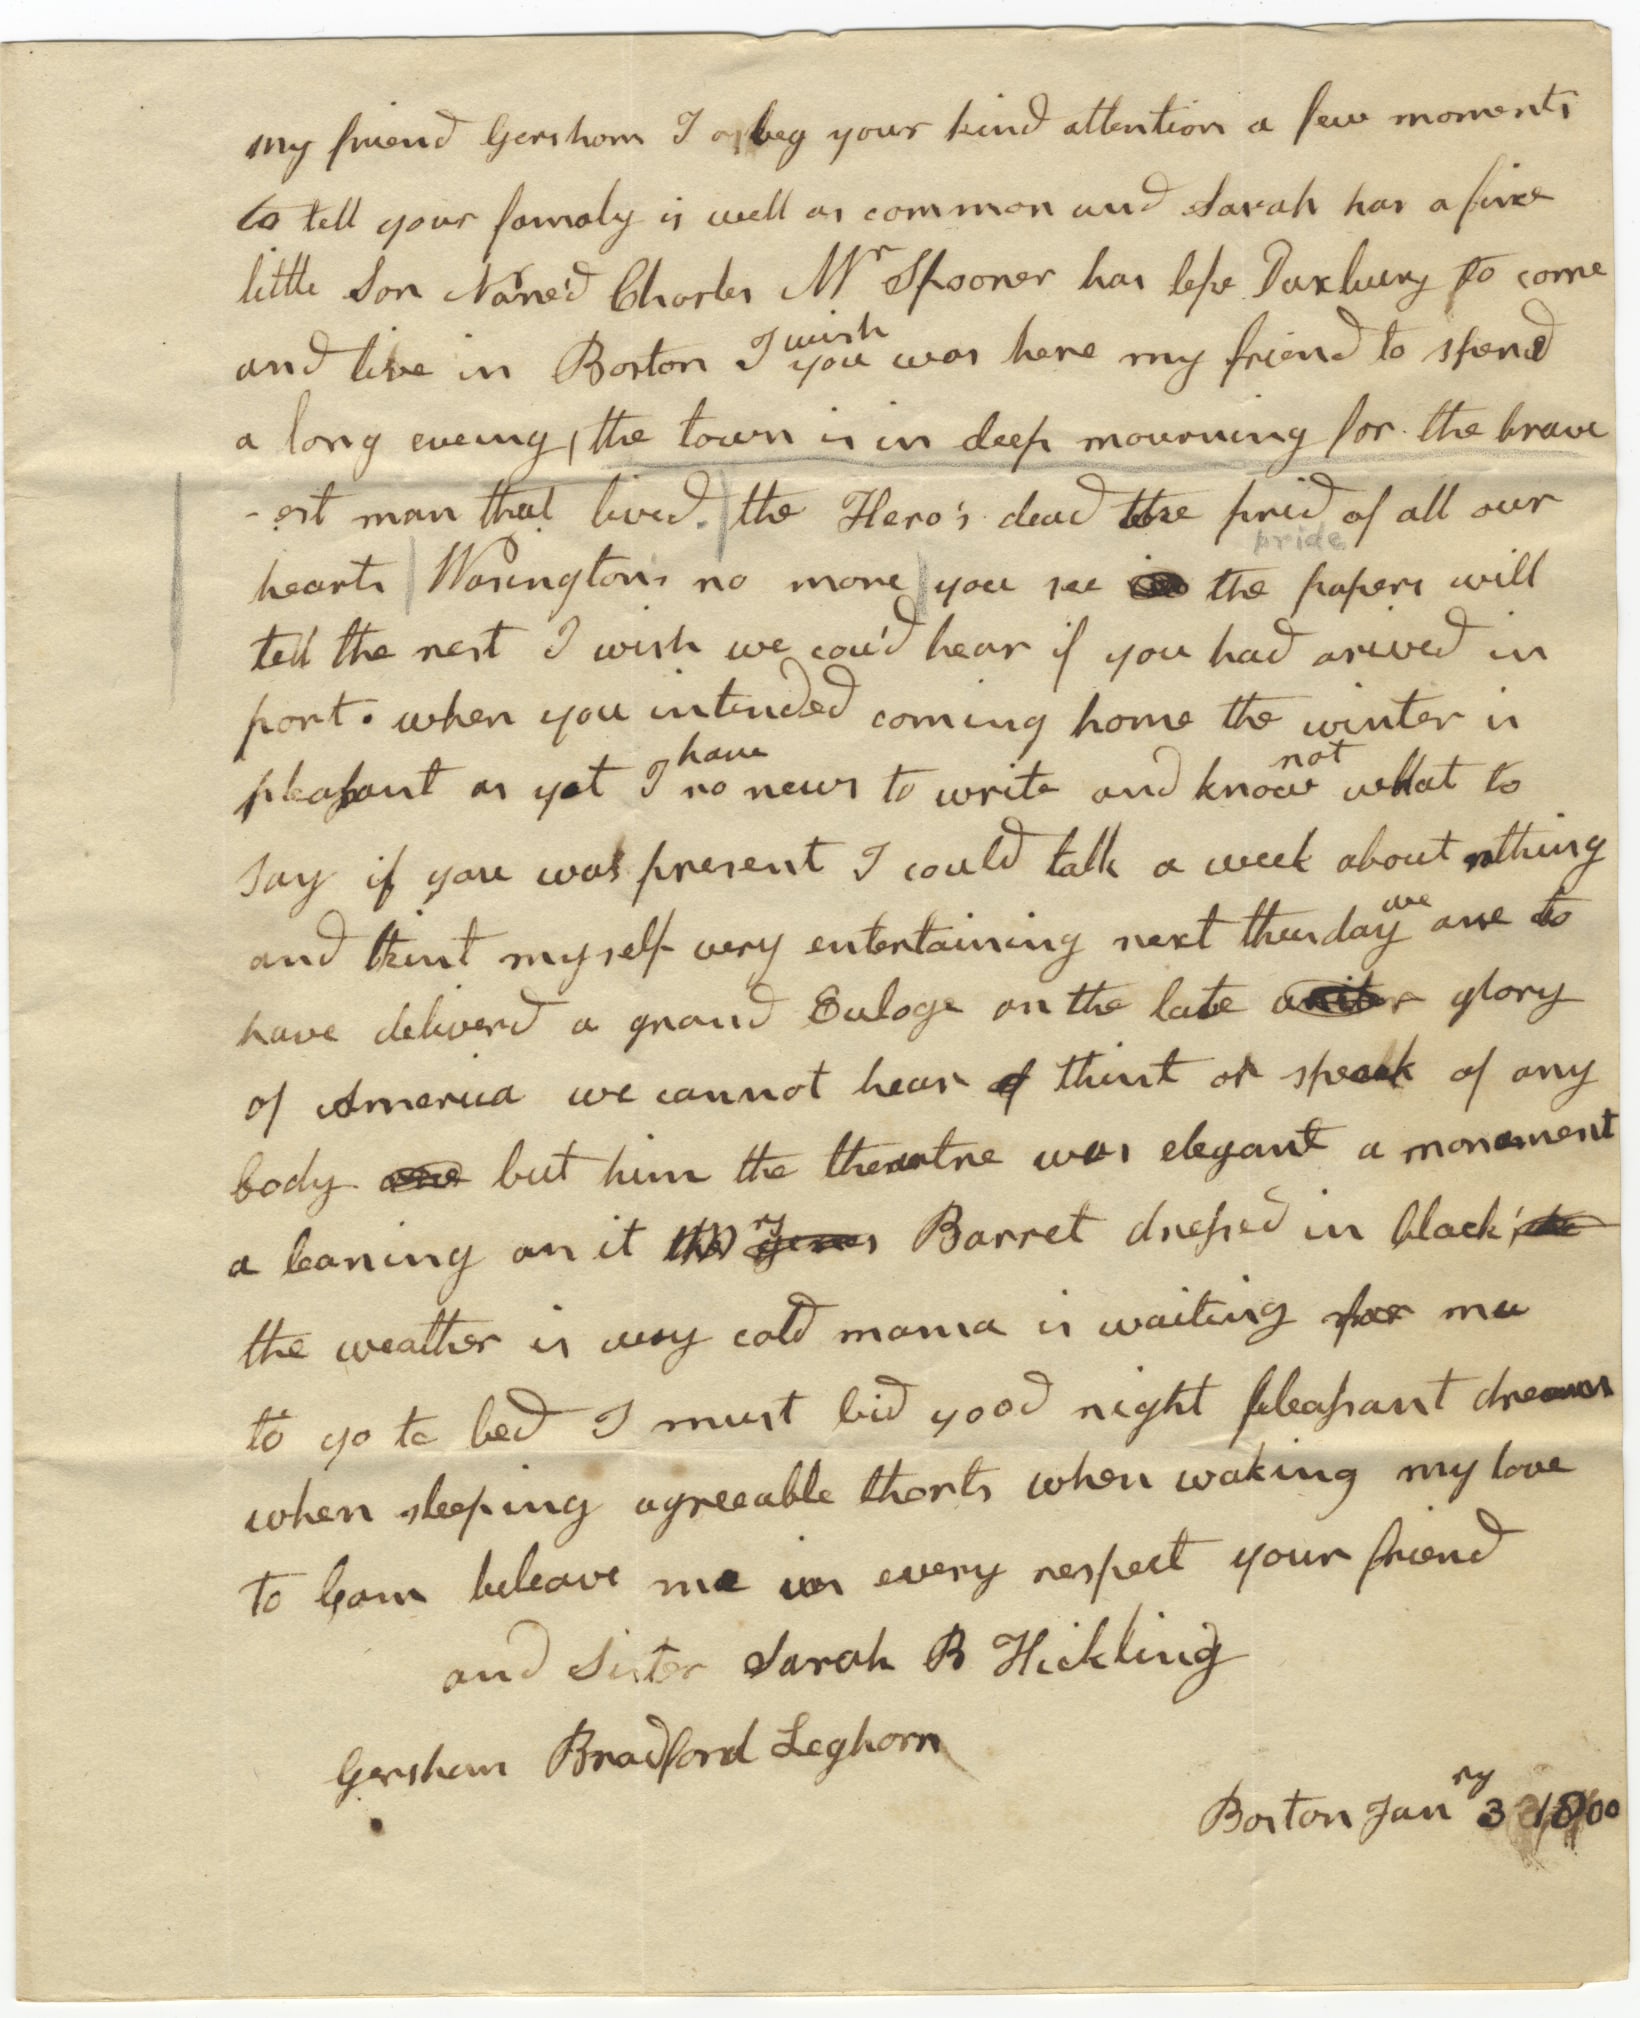 my friend Gershom I beg your kind attention a few moments
to tell your famaly is well as common and Sarah has a fine
little Son Name'd Charles Mr Spooner has left Duxbury to come
and live in Boston I wish you was here my friend to spend
a long eveing, the town is in deep mourning for the brave
-est man that lived. the Hero's dead the prid of all our
pride
hearts Wasingtons no more you see the papers will
tell the rest I wish we cou'd hear if you had arived in
port. when you intended coming home the winter is
pleasant as yet I have no news to write and know not what to
say if you was present I could talk a week about nthing
and think myself very entertaining next thursday we are to
have deliverd a grand Euloge on the late glory
of America we cannot hear of think or speak of any
body but him the theartre was elegant a monement
a leaning on it Mrs Barret dressed in black
the weather is very cold mama is waiting for me
to go to bed I must bid good night pleasant dreams
when sleeping agreeable thorts when waking my love
to Gam beleave me in every respect your friend
and Sister Sarah B Hickling
Gersham Bradford Leghorn
Boston Janry 3 1800